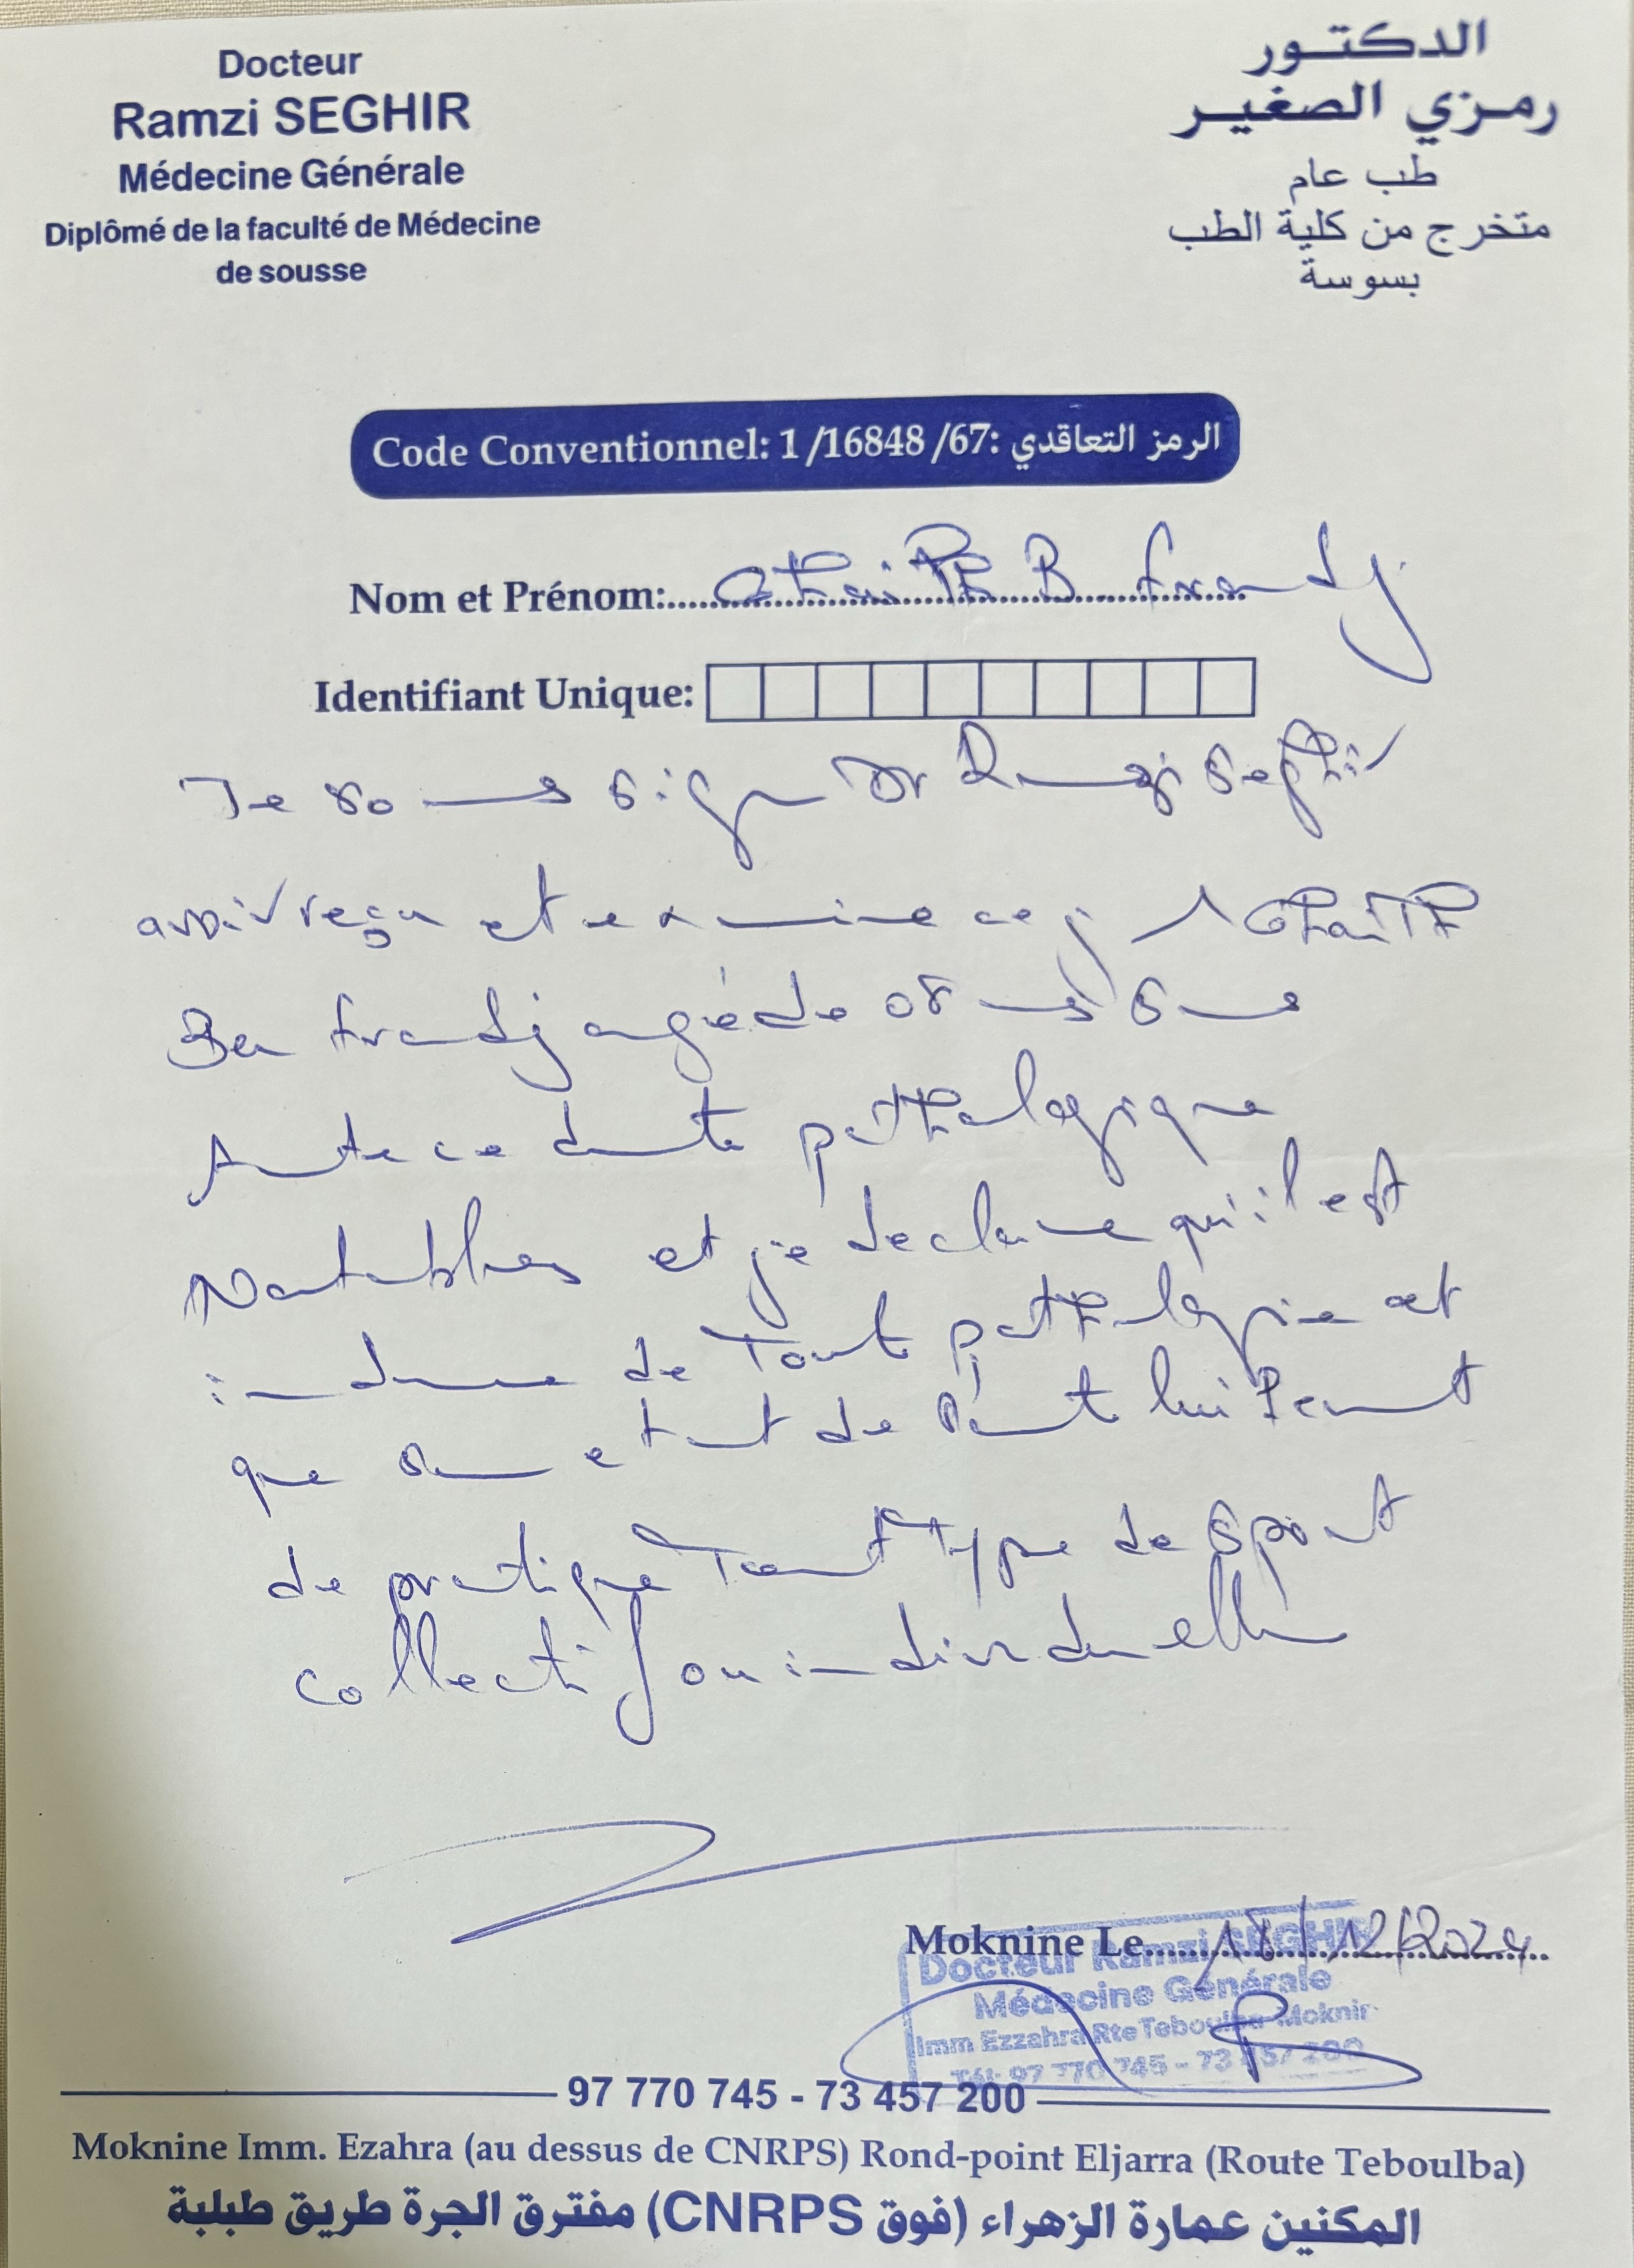 Docteur
Ramzi SEGHIR
Médecine Générale
Diplômé de la faculté de Médecine
de sousse
الدكتور
رمزي الصغير
طب عام
متخرج من كلية الطب
بسوسة
Code Conventionnel: 1/16848/67: الرمز التعاقدي
Nom et Prénom: GhaiTh B fradj
Identifiant Unique:
Je sous signe Dr Ramzi Seghir
avoir reçu et examine ce j GhaiTh
Ben fradj agé de 08 ans sans
Antecedents pathologique
Notables et je declare qu'il est
indemne de Tout pathologie et
que son etat de sant lui Permt
de pratique Tout Type de Sport
collectif ou individuelle
Moknine Le 18/12/2024
Docteur Ramzi SEGHIR
Médecine Générale
Imm Ezzahra Rte Teboulba Moknin
Tél: 97 770 745 - 73 457 200
97 770 745 - 73 457 200
Moknine Imm. Ezahra (au dessus de CNRPS) Rond-point Eljarra (Route Teboulba)
المكنين عمارة الزهراء (فوق CNRPS) مفترق الجرة طريق طبلبة